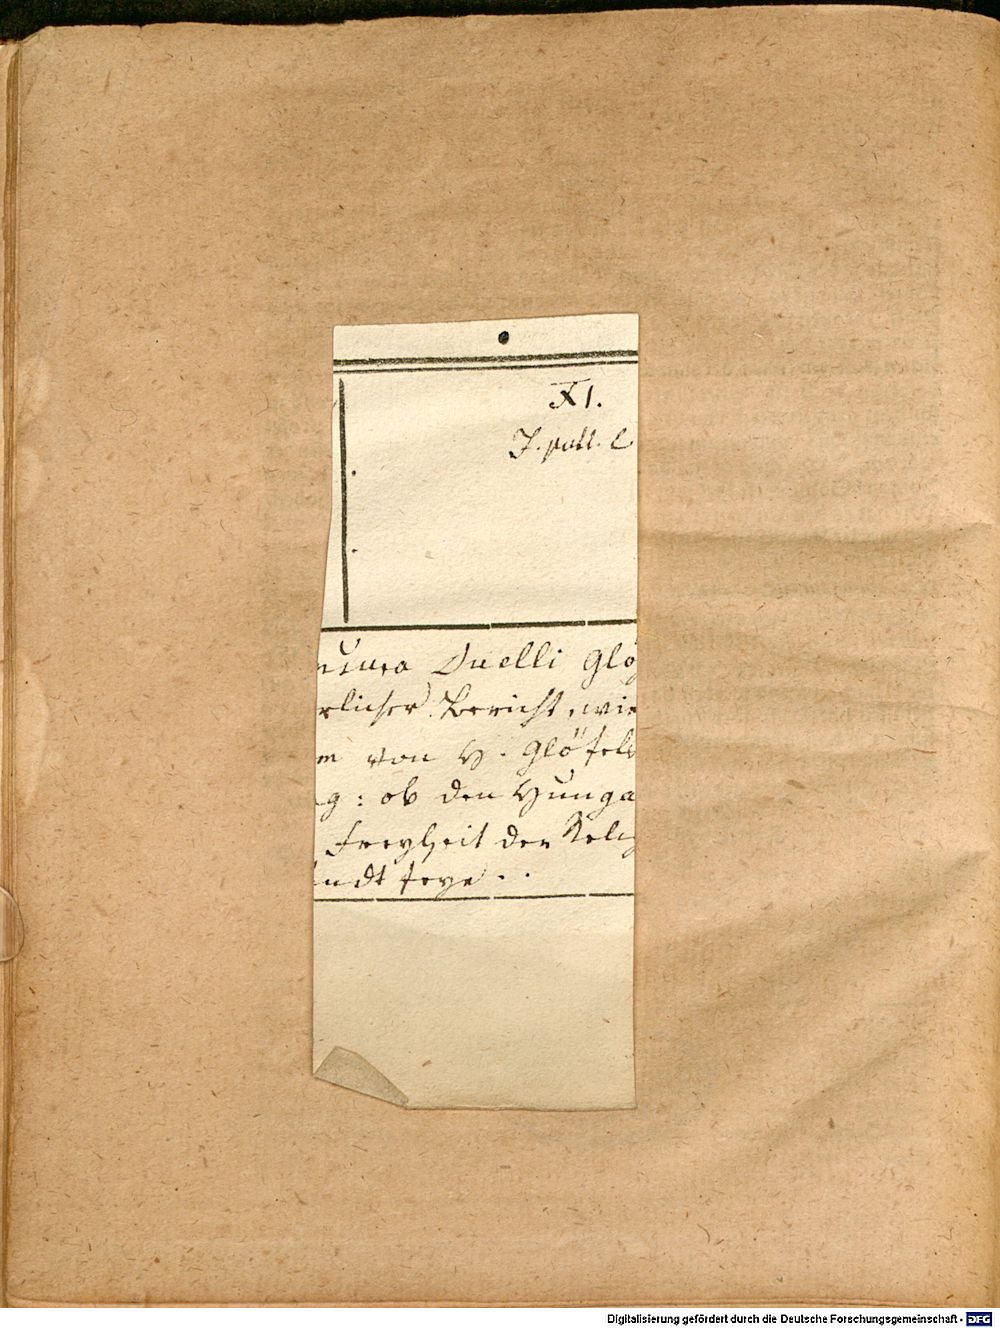 XI.
J. publ. e
Duelli Glö
rlicher Bericht, wie
m von H. Glöfels
g: ob den Hunga
Freyheit der Relig
ndt seye..
Digitalisierung gefördert durch die Deutsche Forschungsgemeinschaft - DFG